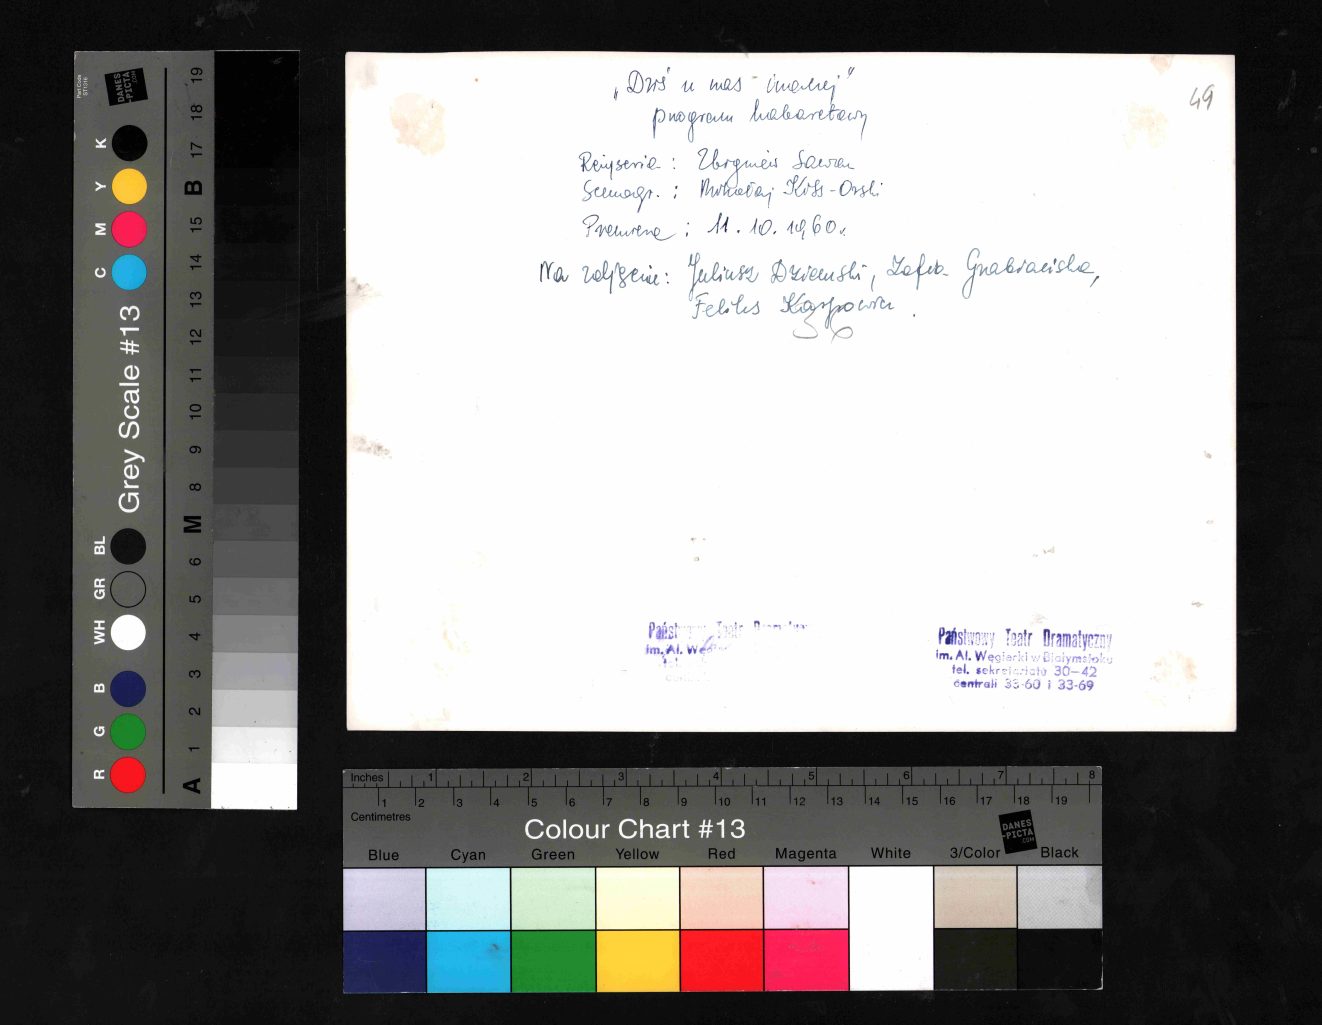 „Dziś u nas inaczej”
program kabaretowy
49
Reżyseria : Zbigniew Sawan
Scenogr. : Mikołaj Kiss-Orski
Premiera : 11. 10. 1960 r.
Na zdjęciu: Juliusz Dzienski, Zofia Grabińska,
Feliks Karpowicz .
Państwowy Teatr Dramatyczny
im. Al. Węgierki w Białymstoku
tel. sekretariatu 30-42
centrali 33-60 i 33-69
Państw Teatr
im. Al. Wę
tel.
Part Code
ST1316
DANES
-PICTA
.COM
Grey Scale #13
K Y M C
BL GR WH B G R
A 1 2 3 4 5 6 M 8 9 10 11 12 13 14 15 B 17 18 19
Inches 1 2 3 4 5 6 7 8
1 2 3 4 5 6 7 8 9 10 11 12 13 14 15 16 17 18 19
Centimetres
Colour Chart #13
DANES
-PICTA
.COM
Blue Cyan Green Yellow Red Magenta White 3/Color Black